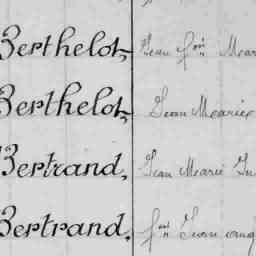 Berthelot, Jean fois Mar
Berthelot, Jean Marie
Bertrand, Jean Marie
Bertrand, Jean